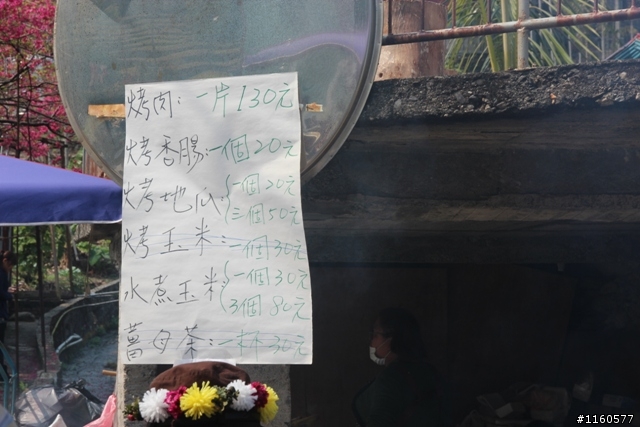 烤肉:一片130元
烤香腸:一個20元
烤地瓜{一個20元
三個50元
烤玉米:一個30元
水煮玉米{一個30元
3個80元
薑母茶:一杯30元
#1160577